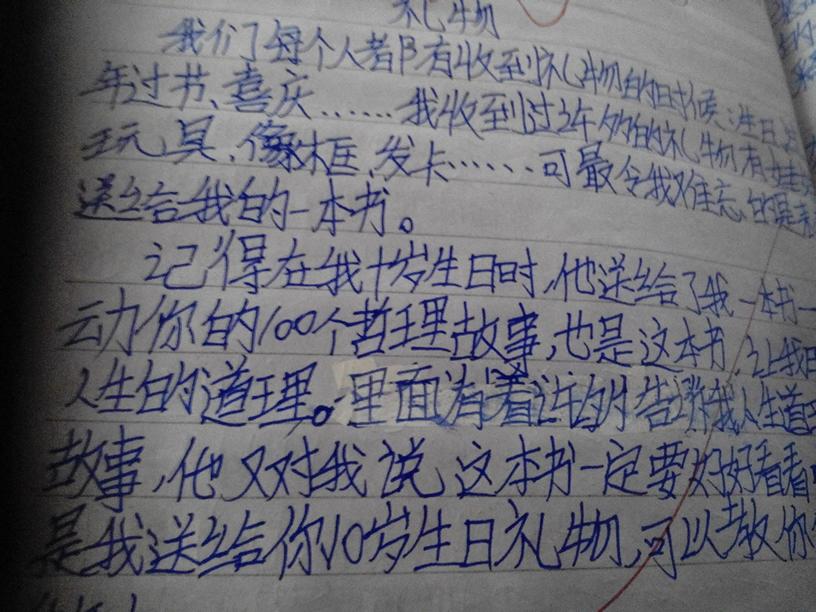 礼物
我们了每个人都有收到礼物的时候:生日、
年过节、喜庆……我收到过许多的礼物有娃
玩具、像框、发卡……可最令我难忘的是
送给我的一本书。
记得在我十岁生日时,他送给了我一本书一
动你的100个哲理故事,也是这本书,让我
人生的道理。里面有着许多的告诉我人生道
故事,他又对我说,这本书一定要好好看看
是我送给你10岁生日礼物,可以教你